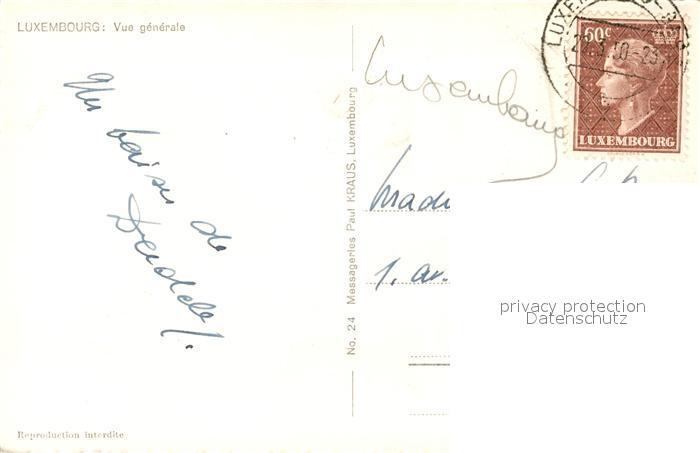 LUXEMBOURG: Vue générale
Un baiser de
Reproduction interdite
No. 24 Messageries Paul KRAUS, Luxembourg
Luxembourg
60c
LUXEMBOURG
1. av.
privacy protection
Datenschutz